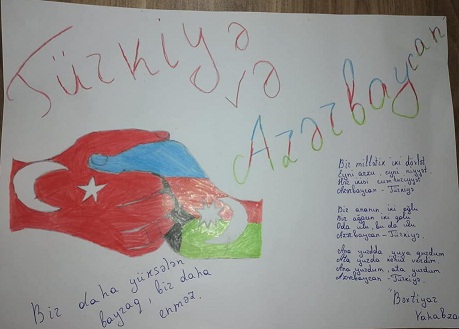 Türkiyə
və
Azərbaycan
Bir millətik, iki dövlət
Eyni arzu, eyni niyyət
Hər ikisi cümhuriyyət
Azərbaycan - Türkiyə.
Bir ananın iki oğlu
Bir ağacın iki qolu
O da ulu, bu da ulu
Azərbaycan - Türkiyə.
Ana yurdda yuva qurdum
Ata yurda könül verdim
Ana yurdum, ata yurdum
Azərbaycan - Türkiyə.
Bəxtiyar
Vahabza
Bir daha yüksələn
bayraq, bir daha
enməz.